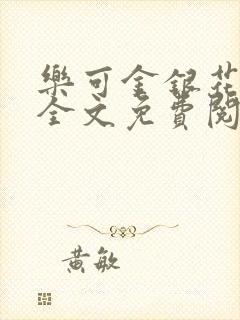 樂可金銀花
全文免費閱
黃敏